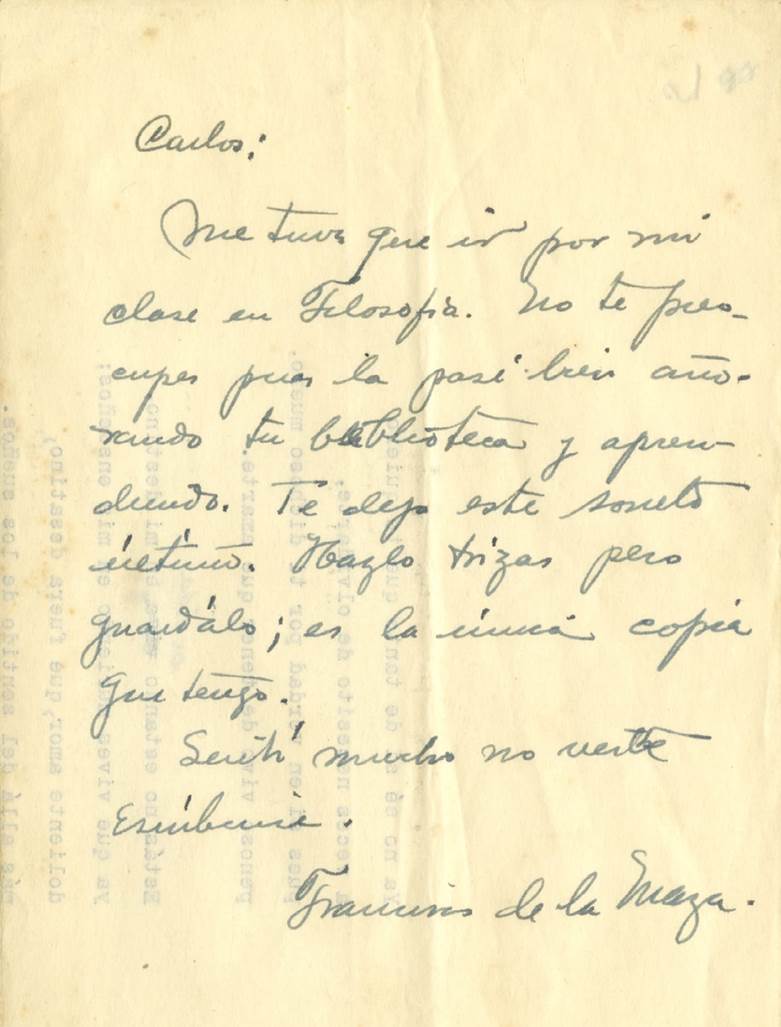 Carlos:
Me tuve que ir por mi
clase en Filosofía. No te preo-
cupes pues la pasé bien año-
rando tu biblioteca y apren-
diendo. Te dejo este soneto
último. Hazlo trizas pero
guardálo; es la única copia
que tengo.
Sentí mucho no verte
Escríbeme.
Francisco de la Maza.